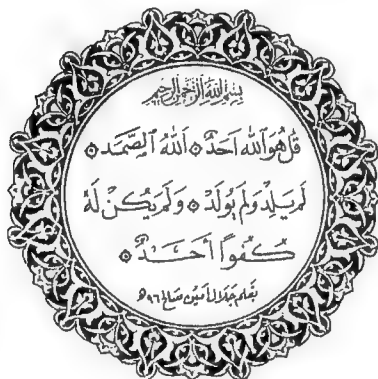 بِسْمِ اللهِ الرَّحْمٰنِ الرَّحِيمِ
قُلْ هُوَ ٱللهُ أَحَدٌ ۞ ٱللهُ ٱلصَّمَد ۞
لَمْ يَلِدْ وَلَمْ يُولَدْ ۞ وَلَمْ يَكُنْ لَهُ
كُفُوًا أَحَـــدٌ ۞
بقلم جلال أمين صالح ٩٦